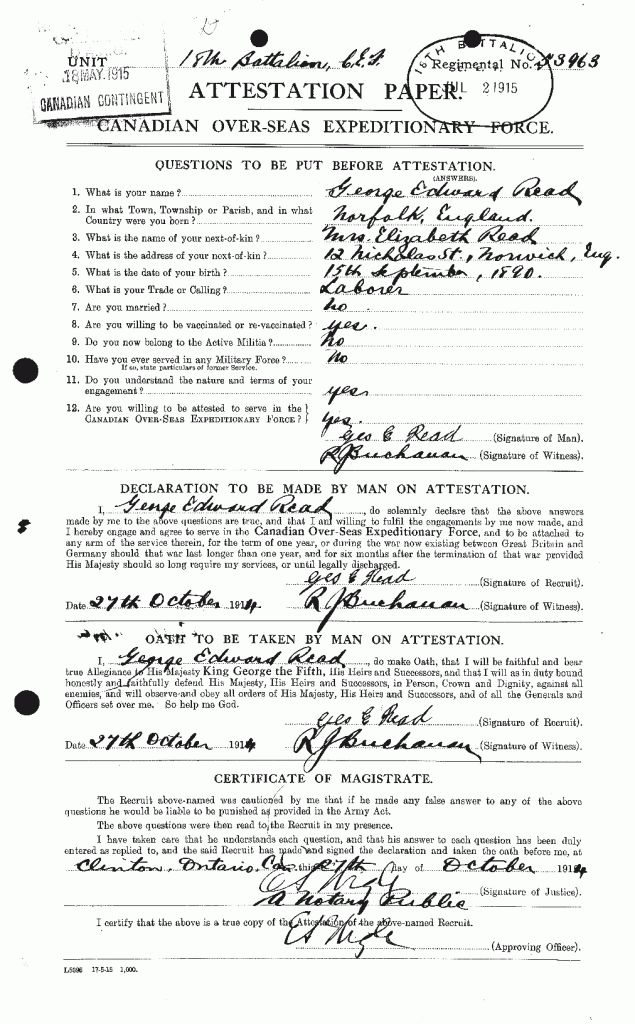 UNIT 18th Battalion, C.E.F. Regimental No. 53963
18 MAY. 1915
CANADIAN CONTINGENT
18TH BATTALION
JUL 2 1915
ATTESTATION PAPER.
CANADIAN OVER-SEAS EXPEDITIONARY FORCE.
QUESTIONS TO BE PUT BEFORE ATTESTATION.
(ANSWERS).
1. What is your name? George Edward Read
2. In what Town, Township or Parish, and in what
Country were you born? Norfolk, England.
3. What is the name of your next-of-kin? Mrs. Elizabeth Read
4. What is the address of your next-of-kin? 12 Nicholas St., Norwich, Eng.
5. What is the date of your birth? 15th September, 1890.
6. What is your Trade or Calling? Laborer
7. Are you married? no.
8. Are you willing to be vaccinated or re-vaccinated? yes.
9. Do you now belong to the Active Militia? no
10. Have you ever served in any Military Force? no
If so, state particulars of former Service.
11. Do you understand the nature and terms of your
engagement? yes
12. Are you willing to be attested to serve in the
CANADIAN OVER-SEAS EXPEDITIONARY FORCE? yes.
Geo E Read (Signature of Man)
R J Buchanan (Signature of Witness).
DECLARATION TO BE MADE BY MAN ON ATTESTATION.
I, George Edward Read, do solemnly declare that the above answers
made by me to the above questions are true, and that I am willing to fulfil the engagements by me now made, and
I hereby engage and agree to serve in the Canadian Over-Seas Expeditionary Force, and to be attached to
any arm of the service therein, for the term of one year, or during the war now existing between Great Britain and
Germany should that war last longer than one year, and for six months after the termination of that war provided
His Majesty should so long require my services, or until legally discharged.
Geo E Read (Signature of Recruit).
Date 27th October 1914 R J Buchanan (Signature of Witness).
OATH TO BE TAKEN BY MAN ON ATTESTATION.
I, George Edward Read, do make Oath, that I will be faithful and bear
true Allegiance to His Majesty King George the Fifth, His Heirs and Successors, and that I will as in duty bound
honestly and faithfully defend His Majesty, His Heirs and Successors, in Person, Crown and Dignity, against all
enemies, and will observe and obey all orders of His Majesty, His Heirs and Successors, and of all the Generals and
Officers set over me. So help me God.
Geo E Read (Signature of Recruit)
Date 27th October 1914 R J Buchanan (Signature of Witness).
CERTIFICATE OF MAGISTRATE.
The Recruit above-named was cautioned by me that if he made any false answer to any of the above
questions he would be liable to be punished as provided in the Army Act.
The above questions were then read to the Recruit in my presence.
I have taken care that he understands each question, and that his answer to each question has been duly
entered as replied to, and the said Recruit has made and signed the declaration and taken the oath before me, at
Clinton, Ontario, Can this 27th day of October 1914
(Signature of Justice)
A Notary Public
I certify that the above is a true copy of the Attestation of the above-named Recruit.
(Approving Officer).
L5096 17-5-15 1,000.